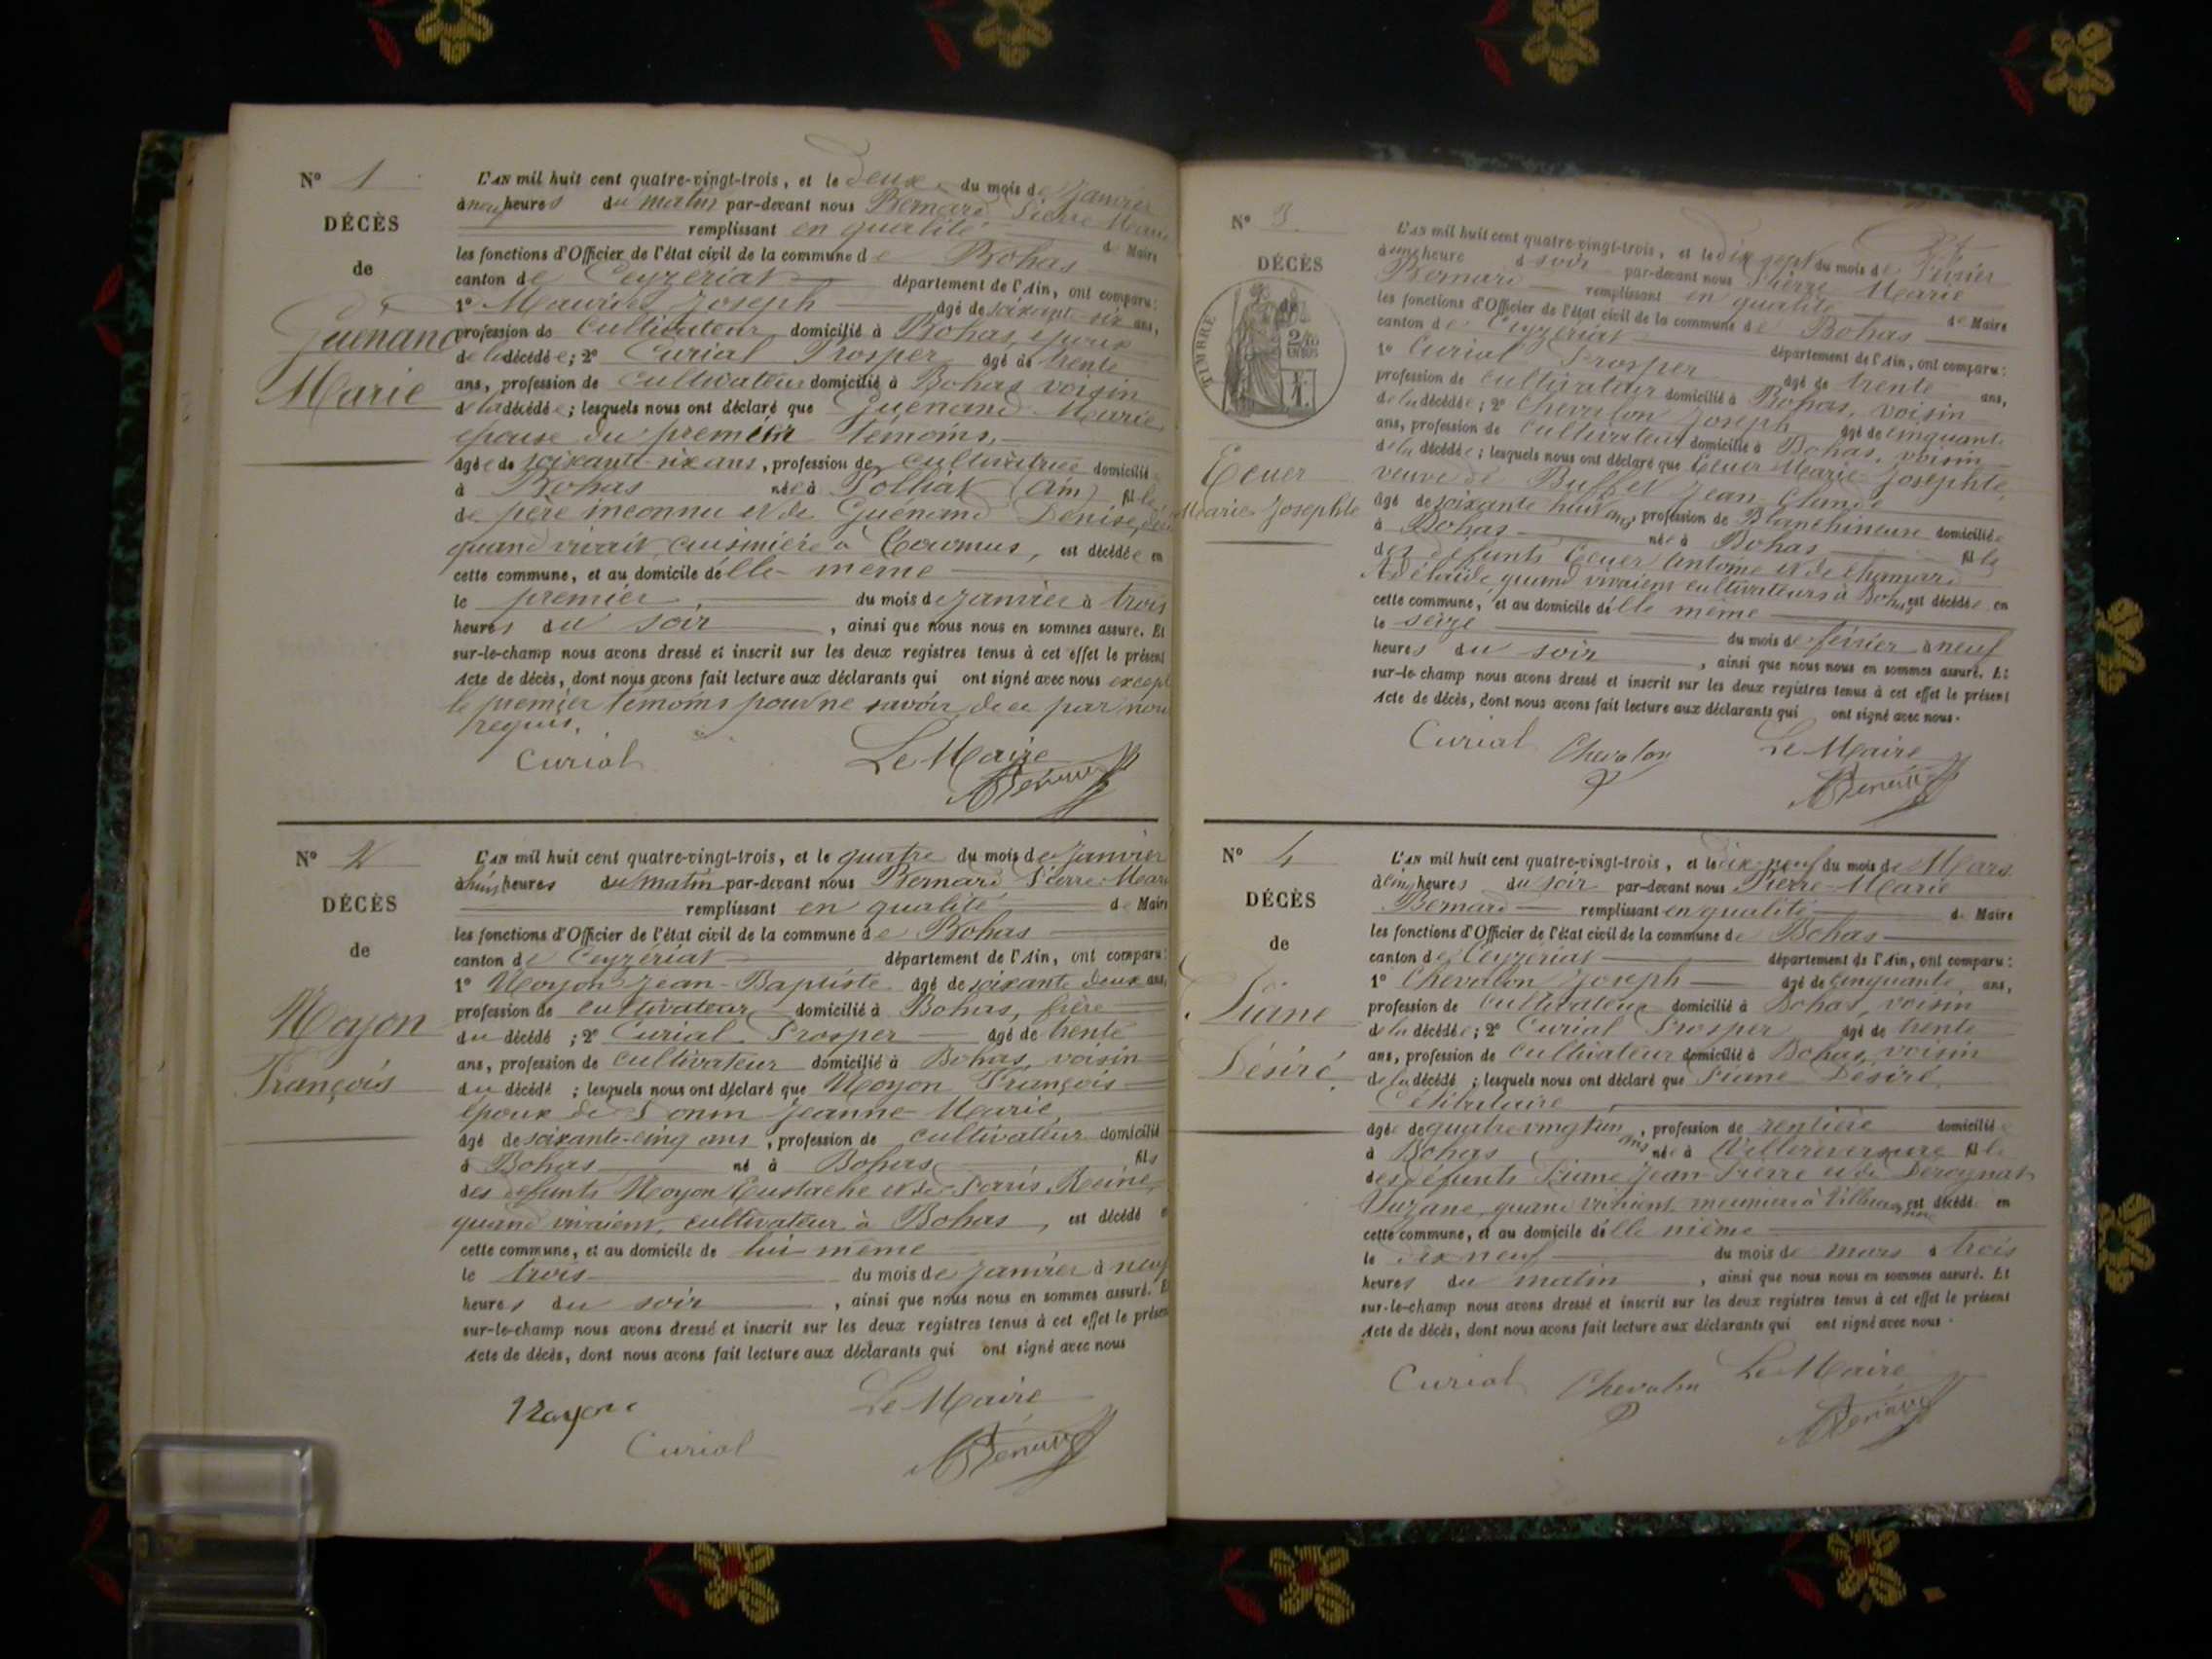 N° 1
DÉCÈS
de
Guénand
Marie
L'AN mil huit cent quatre-vingt-trois, et le deux du mois de Janvier
à neuf heures du matin par-devant nous Bernard Pierre Marie
remplissant en qualité de Maire
les fonctions d'Officier de l'état civil de la commune de Bohas
canton de Ceyzériat département de l'Ain, ont comparu:
1° Joseph âgé de soixante-six ans,
profession de Cultivateur domicilié à Bohas, époux
de la décédée; 2° Curial Prosper âgé de trente
ans, profession de cultivateur domicilié à Bohas voisin
de la décédée; lesquels nous ont déclaré que Guénand Marie
épouse du premier témoins,
âgée de soixante-six ans, profession de cultivatrice domicilié
à Bohas née à Polliat (Ain) fille
de père inconnu et de Guénand Denise,
quand vivait cuisinière à est décédée en
cette commune, et au domicile d'elle-même
le premier du mois de janvier à trois
heures du soir, ainsi que nous nous en sommes assuré. Et
sur-le-champ nous avons dressé et inscrit sur les deux registres tenus à cet effet le présent
Acte de décès, dont nous avons fait lecture aux déclarants qui ont signé avec nous except
le premier témoins pour ne savoir de ce par nou
requis.
Curial Le Maire
N° 2
DÉCÈS
de
Moyon
François
L'AN mil huit cent quatre-vingt-trois, et le quatre du mois de Janvier
à huit heures du matin par-devant nous Bernard Pierre-Mari
remplissant en qualité de Maire
les fonctions d'Officier de l'état civil de la commune de Bohas
canton de Ceyzériat département de l'Ain, ont comparu:
1° Moyon Jean-Baptiste âgé de soixante deux ans,
profession de cultivateur domicilié à Bohas, frère
du décédé; 2° Curial Prosper âgé de trente
ans, profession de cultivateur domicilié à Bohas, voisin
du décédé; lesquels nous ont déclaré que Moyon François
époux de Jeanne-Marie,
âgé de soixante-cinq ans, profession de cultivateur domicilié
à Bohas né à Bohas fils
des défunts Moyon Eustache et de Paris Reine,
quand vivaient, cultivateur à Bohas, est décédé
cette commune, et au domicile de lui-même
le trois du mois de janvier à neuf
heures du soir, ainsi que nous nous en sommes assuré. E
sur-le-champ nous avons dressé et inscrit sur les deux registres tenus à cet effet le présen
Acte de décès, dont nous avons fait lecture aux déclarants qui ont signé avec nous
Moyon Le Maire
Curial
N° 3
DÉCÈS
de
TIMBRE
Ecuer
Marie Josephte
L'AN mil huit cent quatre-vingt-trois, et le dix sept du mois de Février
à une heure d soir par-devant nous Pierre Marie
Bernard remplissant en qualité de Maire
les fonctions d'Officier de l'état civil de la commune de Bohas
canton de Ceyzériat département de l'Ain, ont comparu:
1° Curial Prosper âgé de trente ans,
profession de cultivateur domicilié à Bohas, voisin
de la décédée; 2° Chevalon Joseph âgé de cinquante
ans, profession de cultivateur domicilié à Bohas, voisin
de la décédée; lesquels nous ont déclaré que Ecuer Marie-Josephte,
veuve de Buffet Jean-Claude
âgé de soixante huit ans, profession de Blanchineuse domiciliée
à Bohas née à Bohas fille
des défunts Ecuer Antoine et de Chamard
Adélaïde quand vivaient cultivateurs à Bohas est décédée en
cette commune, et au domicile d'elle même
le seize du mois de février à neuf
heures du soir, ainsi que nous nous en sommes assuré. Et
sur-le-champ nous avons dressé et inscrit sur les deux registres tenus à cet effet le présent
Acte de décès, dont nous avons fait lecture aux déclarants qui ont signé avec nous.
Curial Chevalon Le Maire
N° 4
DÉCÈS
de
Piane
Désiré
L'AN mil huit cent quatre-vingt-trois, et le dix-neuf du mois de Mars
à cinq heures du soir par-devant nous Pierre-Marie
Bernard remplissant en qualité de Maire
les fonctions d'Officier de l'état civil de la commune de Bohas
canton de Ceyzériat département de l'Ain, ont comparu:
1° Chevalon Joseph âgé de cinquante ans,
profession de cultivateur domicilié à Bohas, voisin
de la décédée; 2° Curial Prosper âgé de trente
ans, profession de cultivateur domicilié à Bohas, voisin
de la décédé; lesquels nous ont déclaré que Piane Désiré,
Célibataire
âgée de quatre vingt un ans, profession de rentière domicilié
à Bohas née à Villereversure fille
des défunts Piane Jean-Pierre et de
Suzane quand vivaient meuniers à est décédé en
cette commune, et au domicile d'elle même
le dix neuf du mois de mars à trois
heures du matin, ainsi que nous nous en sommes assuré. Et
sur-le-champ nous avons dressé et inscrit sur les deux registres tenus à cet effet le présent
Acte de décès, dont nous avons fait lecture aux déclarants qui ont signé avec nous.
Curial Chevalon Le Maire